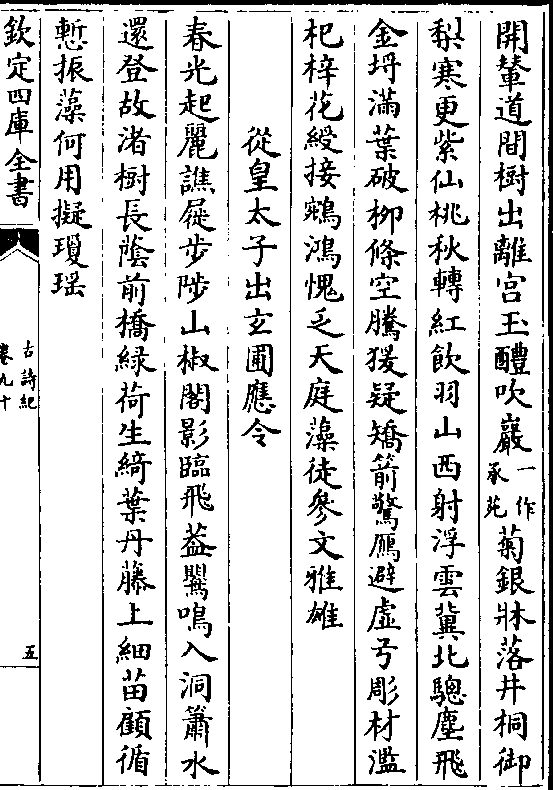 開輦道間樹出離宮玉醴吹巖一作承苑菊銀牀落井桐御
梨寒更紫仙桃秋轉紅飲羽山西射浮雲冀北驄塵飛
金埒滿葉破柳條空騰猨疑矯箭驚鴈避虛弓彫材濫
杞梓花綬接鵷鴻愧乏天庭藻徒參文雅雄
從皇太子出玄圃應令
春光起麗譙屣步陟山椒閣影臨飛葢鸎鳴入洞簫水
還登故渚樹長蔭前橋緑荷生綺葉丹藤上細苗顧循
慙振藻何用擬瓊瑤
欽定四庫全書
古詩紀
卷九十
五